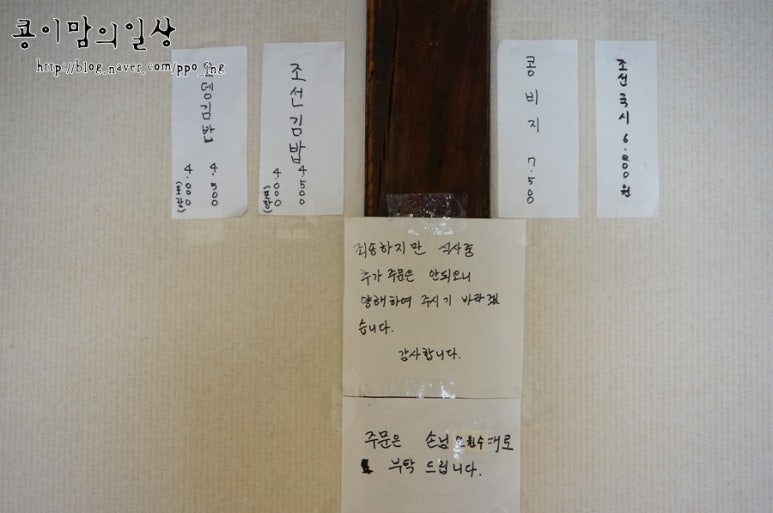 콩이맘의일상
http://blog.naver.com/ppo_ing
뎅김밥
4.500
4.000
(포장)
조선김밥
4.500
4.000
(포장)
콩비지 7.500
조선국시 6.000원
죄송하지만 식사중
추가 주문은 안되오니
양해하여 주시기 바라겠
습니다.
감사합니다.
주문은 손님 인원수대로
부탁 드립니다.